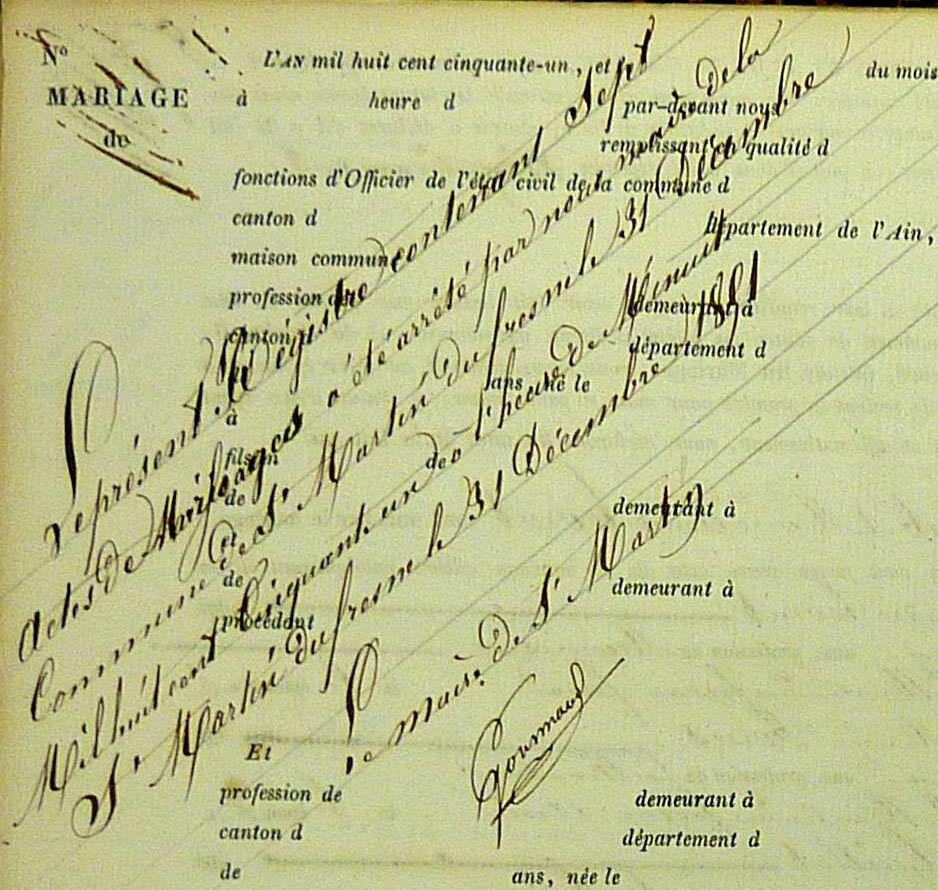 No
MARIAGE
de
L'AN mil huit cent cinquante-un, et le du mois
à heure d par-devant nous
remplissant en qualité d
fonctions d'Officier de l'état civil de la commune d
canton d département de l'Ain,
maison commune
profession de demeurant à
canton d département d
ans, né le
à
fils de
de demeurant à
et
de demeurant à
procédant
Et
profession de demeurant à
canton d département d
de ans, née le
Le présent Régistre contenant Sept
actes de Mariages a été arrêté par nous maire de la
Commune de St Martin du fresne le 31 Décembre
Mil huit cent Cinquante un à l'heure de Minuit
St Martin du fresne le 31 Décembre 1851
Le maire de St Martin